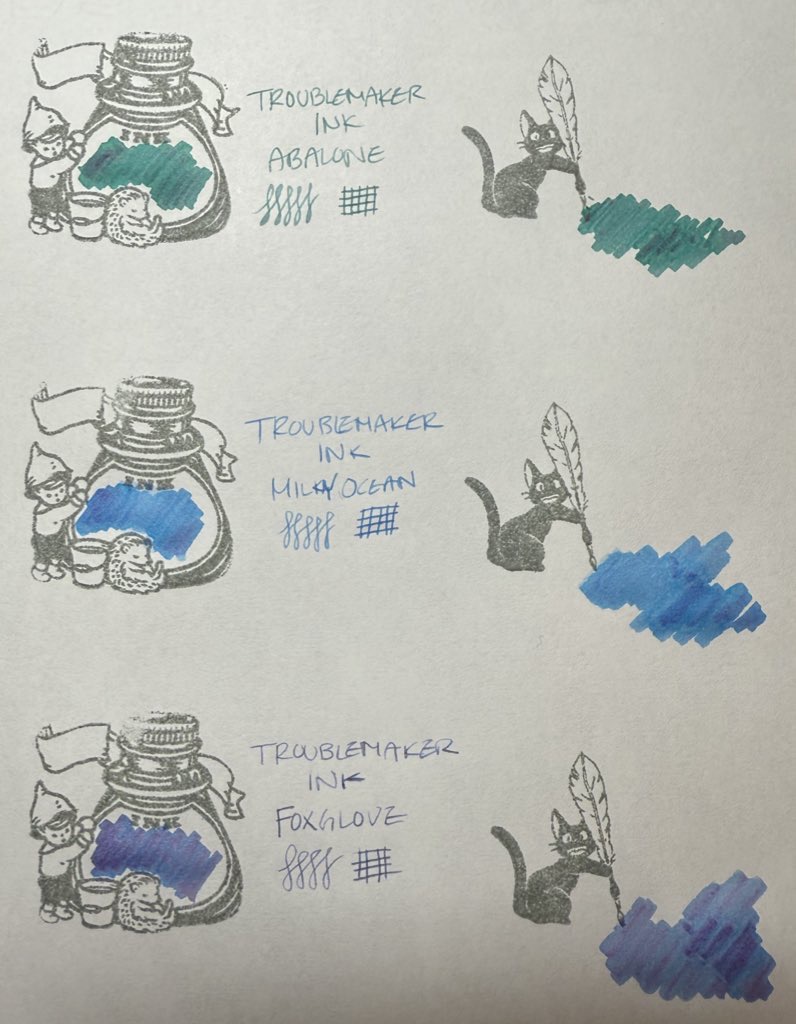 INK
TROUBLEMAKER
INK
ABALONE
INK
TROUBLEMAKER
INK
MILKY OCEAN
INK
TROUBLEMAKER
INK
FOXGLOVE